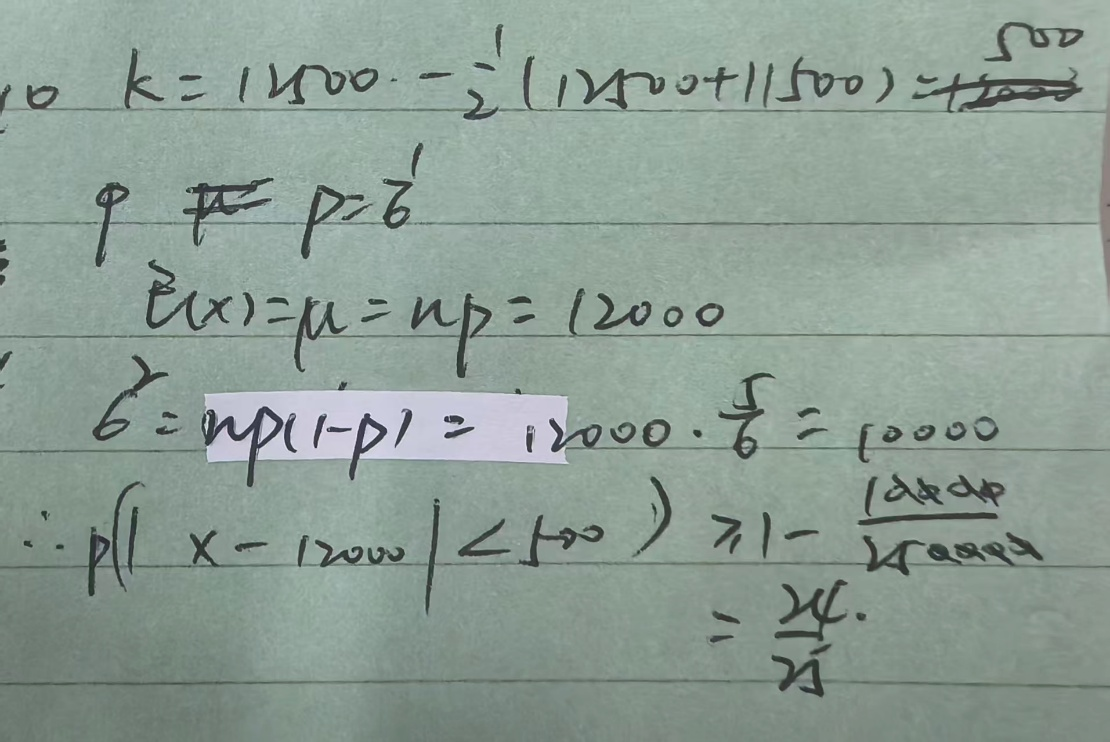 10 k = 12500 · - 1/2 (12500 + 11500) = 500
p = 1/6
E(x) = μ = np = 12000
σ² = np(1-p) = 12000 · 5/6 = 10000
∴ p(| x - 12000 | < 500) ≥ 1 - 10000/250000
= 24/25 .